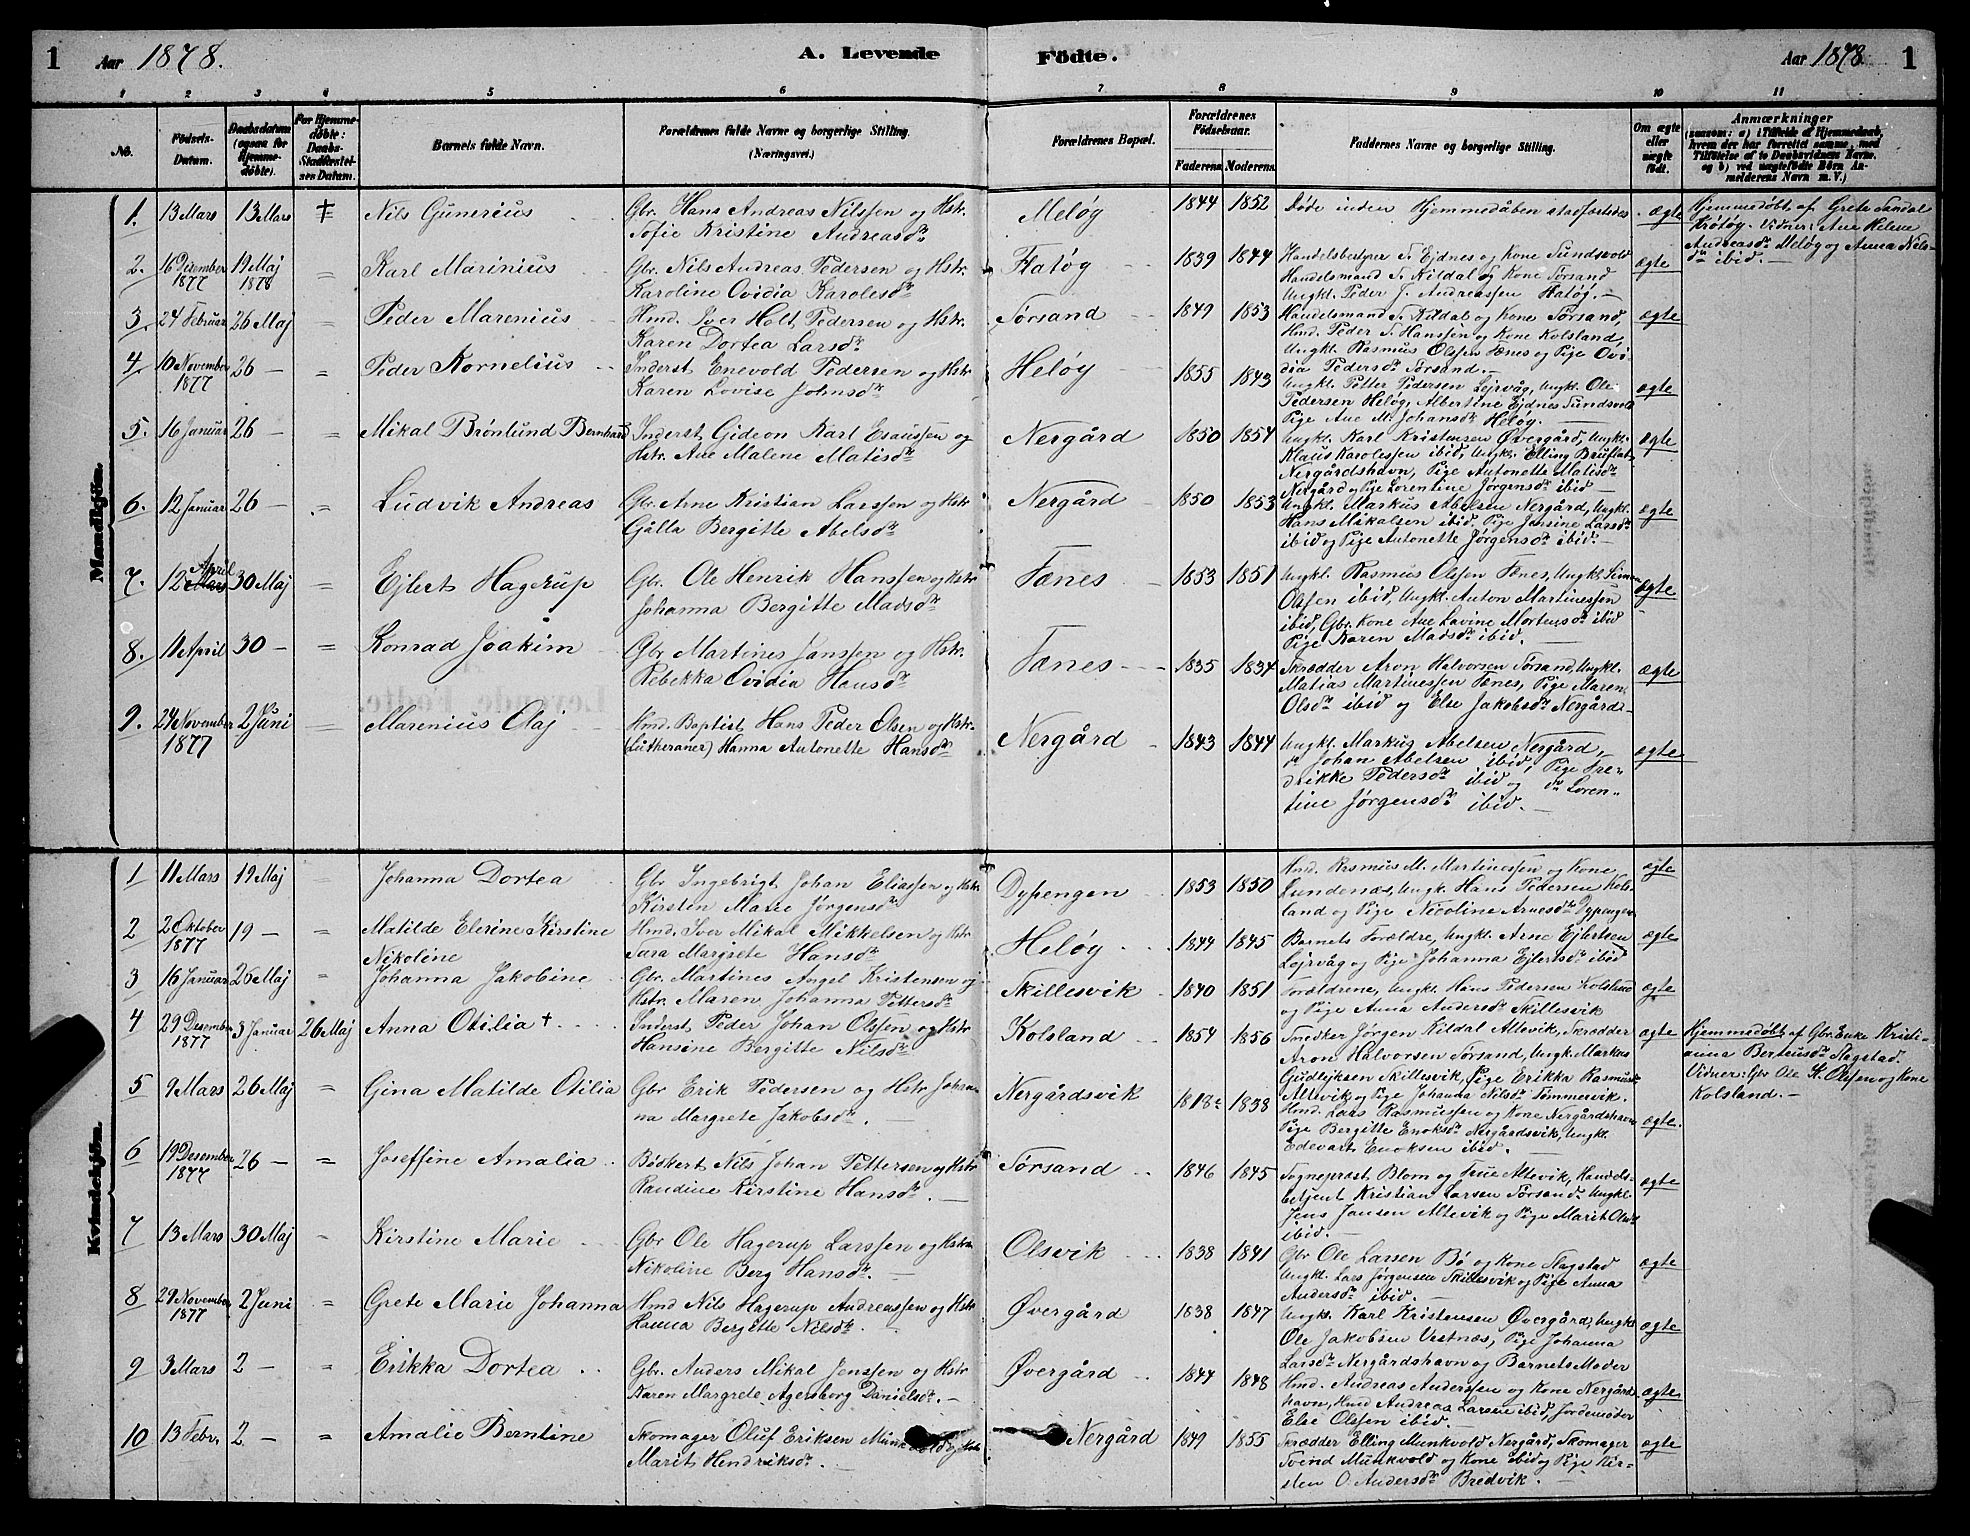 1 Aar 1878. A. Levende Födte. Aar 1878 1
1 2 3 4 5 6 7 8 9 10 11
No. Födsels-Datum. Daabsdatum (ogsaa for Hjemmedöbte). For Hjemmedöbte: Daabs-Stadfæstelsens Datum. Barnets fulde Navn. Forældrenes fulde Navne og borgerlige Stilling. (Næringsvei.) Forældrenes Bopæl. Forældrenes Födselsaar. Faderens Moderens Faddernes Navne og borgerlige Stilling. Om ægte eller uægte födt. Anmærkninger
(saasom: a) i Tilfælde af Hjemmedaab, hvem der har forrettet samme, med Tilföielse af to Daabsvidners Navne, og b) ved uægtefödte Börn Anmelderens Navn m. V.)
Mandkjön.
1. 13 Mars 13 Mars Nils Gunerius Gbr. Hans Andreas Nilssen og Hstr.
Sofie Kristine Andreasdr Meløg 1844 1852 Døde inden Hjemmedåben stadfæstedes ægte Hjemmedøbt af Grete Sandal
Krøtøg. Vidner: Ane Helene
Andreasdr Meløg og Anna Nils-
dr ibid. —
2. 16 Desember 1877 19 Maj 1878 = Karl Marinius Gbr. Nils Andreas Pedersen og Hstr.
Karoline Ovidia Karolesdr Flatøg 1839 1844 Handelsbestyrer S. Ejdnes og Kone Sundsvold
Handelsmand S. Kildal og Kone Sørsand
Ungkl. Peder J. Andreassen Flatøg. — ægte
3 24 Februar 26 Maj = Peder Marenius Hmd. Iver Holt Pedersen og Hstr.
Karen Dortea Larsdr Sørsand 1849 1853 Handelsmand S. Kildal og Kone Sørsand,
Hmd. Peder S. Hanssen og Kone Kolsland,
Ungkl. Rasmus Olssen Fænes og Pige Ovi-
dia Pedersdr Sørsand. — ægte
4 10 November 1877 26 — = Peder Kornelius Inderst Enevold Pedersen og Hstr
Karen Lovise Johnsdr Heløg 1855 1843 Ungkl. Petter Pedersen Lejrvåg, Ungkl. Ole
Pedersen Heløg, Albertine Ejdnes Sundsvold
Pige Ane M. Johansdr Heløg. ægte
5. 16 Januar 26 — = Mikal Brønlund Bernhard Inderst Gideon Karl Esaussen og
Hstr. Ane Malene Matisdr Nergård 1850 1854 Ungkl. Karl Kristensen Øvergård, Ungkl.
Klaus Karolessen ibid, Ungkl. Elling Bruflat
Nergårdshavn, Pige Antonette Matisdr
Nergård og Pige Lorentine Jørgensdr ibid — ægte
6. 12 Januar 26 — = Ludvik Andreas Gbr. Arne Kristian Larssen og Hstr
Gjålla Bergitte Abelsdr Nergård 1850 1853 Ungkl. Markus Abelsen Nergård, Ungkl.
Hans Mikalsen ibid. Pige Jensine Larsdr
ibid og Pige Antonette Jørgensdr ibid. — ægte
7. 12 April 30 Maj = Ejlert Hagerup Gbr. Ole Henrik Hanssen og Hstr
Johanna Bergitte Madsdr Fænes 1853 1851 Ungkl. Rasmus Olssen Fænes, Ungkl. Simon
Olssen ibid, Ungkl. Anton Martinessen
ibid, Gbr. Kone Ane Lavine Mortensdr ibid
Pige Karen Madsdr ibid. ægte
8. 11 April 30 — = Konrad Joakim Gbr Martines Janssen og Hstr.
Rebekka Ovidia Hansdr Fænes 1835 1834 Skrædder Aron Halvorsen Sørsand, Ungkl.
Matias Martinessen Fænes, Pige Maren
Olsdr ibid og Else Jakobsdr Nergård. ægte
9. 24 November 1877 2 Juni = Marenius Olaj Hmd. Baptist Hans Peder Olsen og Hstr.
(Lutheraner) Hanna Antonette Hansdr Nergård 1843 1844 Ungkl. Markus Abelsen Nergård,
do Johan Abelsen ibid, Pige Fre-
drikke Pedersdr ibid og do Loren-
tine Jørgensdr ibid. — ægte
Kvindekjön.
1 11 Mars 19 Maj Johanna Dortea Gbr Ingebrigt Johan Eliassen og Hstr
Kirsten Marie Jørgensdr Dypengen 1853 1850 Hmd. Rasmus M. Martinessen og Kone
Lundenæs, Ungk. Hans Pedersen Kols-
land og Pige Nicoline Arnesdr Dypengen ægte
2 2 Oktober 1877 19 — = Matilde Elerine Kirstine
Nikoline Hmd. Iver Mikal Mikkelsen og Hstr
Sara Margrete Hansdr Heløg 1844 1845 Barnets Forældre, Ungkl. Arne Ejlertsen
Lejrvåg og Pige Johanna Ejlertsdr ibid ægte
3 16 Januar 26 Maj = Johanna Jakobine Gbr. Martines Angel Kristensen og
Hstr. Maren Johanna Pettersdr Skillesvik 1840 1851 Forældrene, Ungkl. Hans Pedersen Kolsland
og Pige Anna Andersdr Skillesvik ægte
4 29 Desember 1877 3 Januar 26 Maj Anna Otilia † Inderst Peder Johan Olssen og Hstr
Hansine Bergitte Nilsdr Kolsland 1854 1856 Smedker Jørgen Kildal Altevik, Skrædder
Aron Halvorsen Sørsand, Ungk. Markus
Gudlejksen Skillesvik, Pige Erikka Rasmusdr
Altevik og Pige Johanna Nilsdr Tømmervik. ægte Hjemmedøbt af Gbr. Enke Kristi-
anna Berteusdr Slagstad.
Vidner: Gbr Ole St. Olssen og Kone
Kolsland. —
5 9 Mars 26 Maj = Gina Matilde Otilia Gbr Erik Pedersen og Hstr Johan-
na Margrete Jakobsdr. — Nergårdsvik 1838 Hmd. Lars Rasmussen og Kone Nergårdshavn
Pige Bergitte Enoksdr Nergårdsvik, Ungkl.
Edevart Enoksen ibid. — ægte.
6 19 Desember 1877 26 — = Joseffine Amalia Bødkert Nils Johan Pettersen og Hstr
Randine Kirstine Hansdr. — Sørsand 1846 1845 Sogneprest Blom og Frue Altevik, Handels-
betjent Kristian Larsen Sørsand. Ungkl.
Jens Jansen Altevik og Pige Marit Olsdr
ibid. — ægte
7 13 Mars 30 Maj = Kirstine Marie Gbr Ole Hagerup Larssen og Hstr
Nikoline Berg Hansdr. — Olsvik 1838 1841 Gbr Ole Larsen Bø og Kone Slagstad
Ungkl. Lars Jørgensen Skillesvik og Pige Anna
Andersdr ibid. — ægte
8 29 November 1877 2 Juni = Grete Marie Johanna Hmd Nils Hagerup Andreassen og Hstr
Hanna Bergitte Nilsdr. Øvergård 1838 1847 Ungkl. Karl Kristensen Øvergård, Ungkl
Ole Jakobsen Vestnæs, Pige Johanna
Larsdr Nergårdshavn og Barnets Moder ægte
9 3 Mars 2 — = Erikka Dortea Gbr. Anders Mikal Jenssen og Hstr
Karen Margrete Agersborg Danielsdr. — Øvergård 1844 1848 Hmd. Andreas Anderssen og Kone Nergårds
havn, Hmd Andreas Larsen ibid, Jordemoder
Else Olssen ibid. ægte
10 13 Febr. 2 — = Amalie Berntine Skomager Oluf Eriksen Munkvold og Hstr
Marit Hendriksdr. — Nergård 1849 1855 Skrædder Elling Munkvold Nergård, Skomager
Svend Munkvold og Kone ibid og Pige Kir-
sten O. Andersdr Bredvik. — ægte